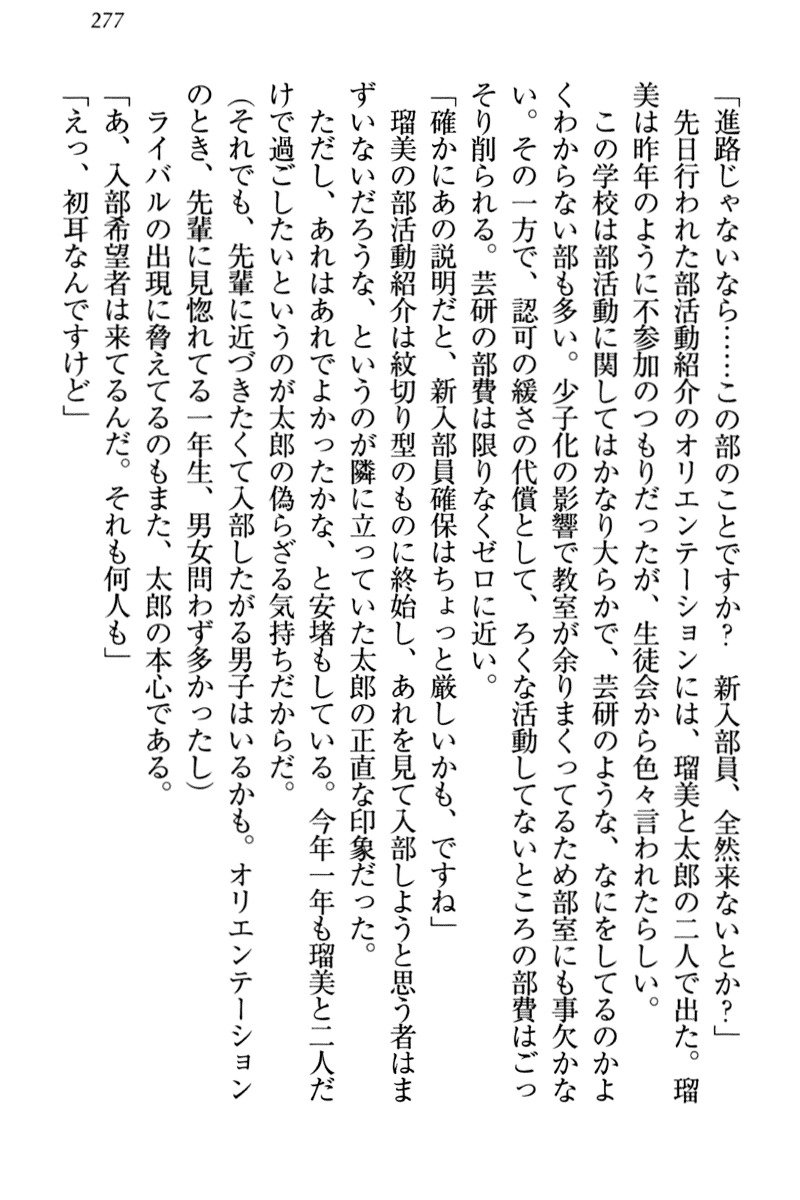 277
「進路じゃないなら……この部のことですか？　新入部員、全然来ないとか？」
　先日行われた部活動紹介のオリエンテーションには、瑠美と太郎の二人で出た。瑠
美は昨年のように不参加のつもりだったが、生徒会から色々言われたらしい。
　この学校は部活動に関してはかなり大らかで、芸研のような、なにをしてるのかよ
くわからない部も多い。少子化の影響で教室が余りまくってるため部室にも事欠かな
い。その一方で、認可の緩さの代償として、ろくな活動してないところの部費はごっ
そり削られる。芸研の部費は限りなくゼロに近い。
「確かにあの説明だと、新入部員確保はちょっと厳しいかも、ですね」
　瑠美の部活動紹介は紋切り型のものに終始し、あれを見て入部しようと思う者はま
ずいないだろうな、というのが隣に立っていた太郎の正直な印象だった。
　ただし、あれはあれでよかったかな、と安堵もしている。今年一年も瑠美と二人だ
けで過ごしたいというのが太郎の偽らざる気持ちだからだ。
（それでも、先輩に近づきたくて入部したがる男子はいるかも。オリエンテーション
のとき、先輩に見惚れてる一年生、男女問わず多かったし）
　ライバルの出現に脅えてるのもまた、太郎の本心である。
「あ、入部希望者は来てるんだ。それも何人も」
「えっ、初耳なんですけど」